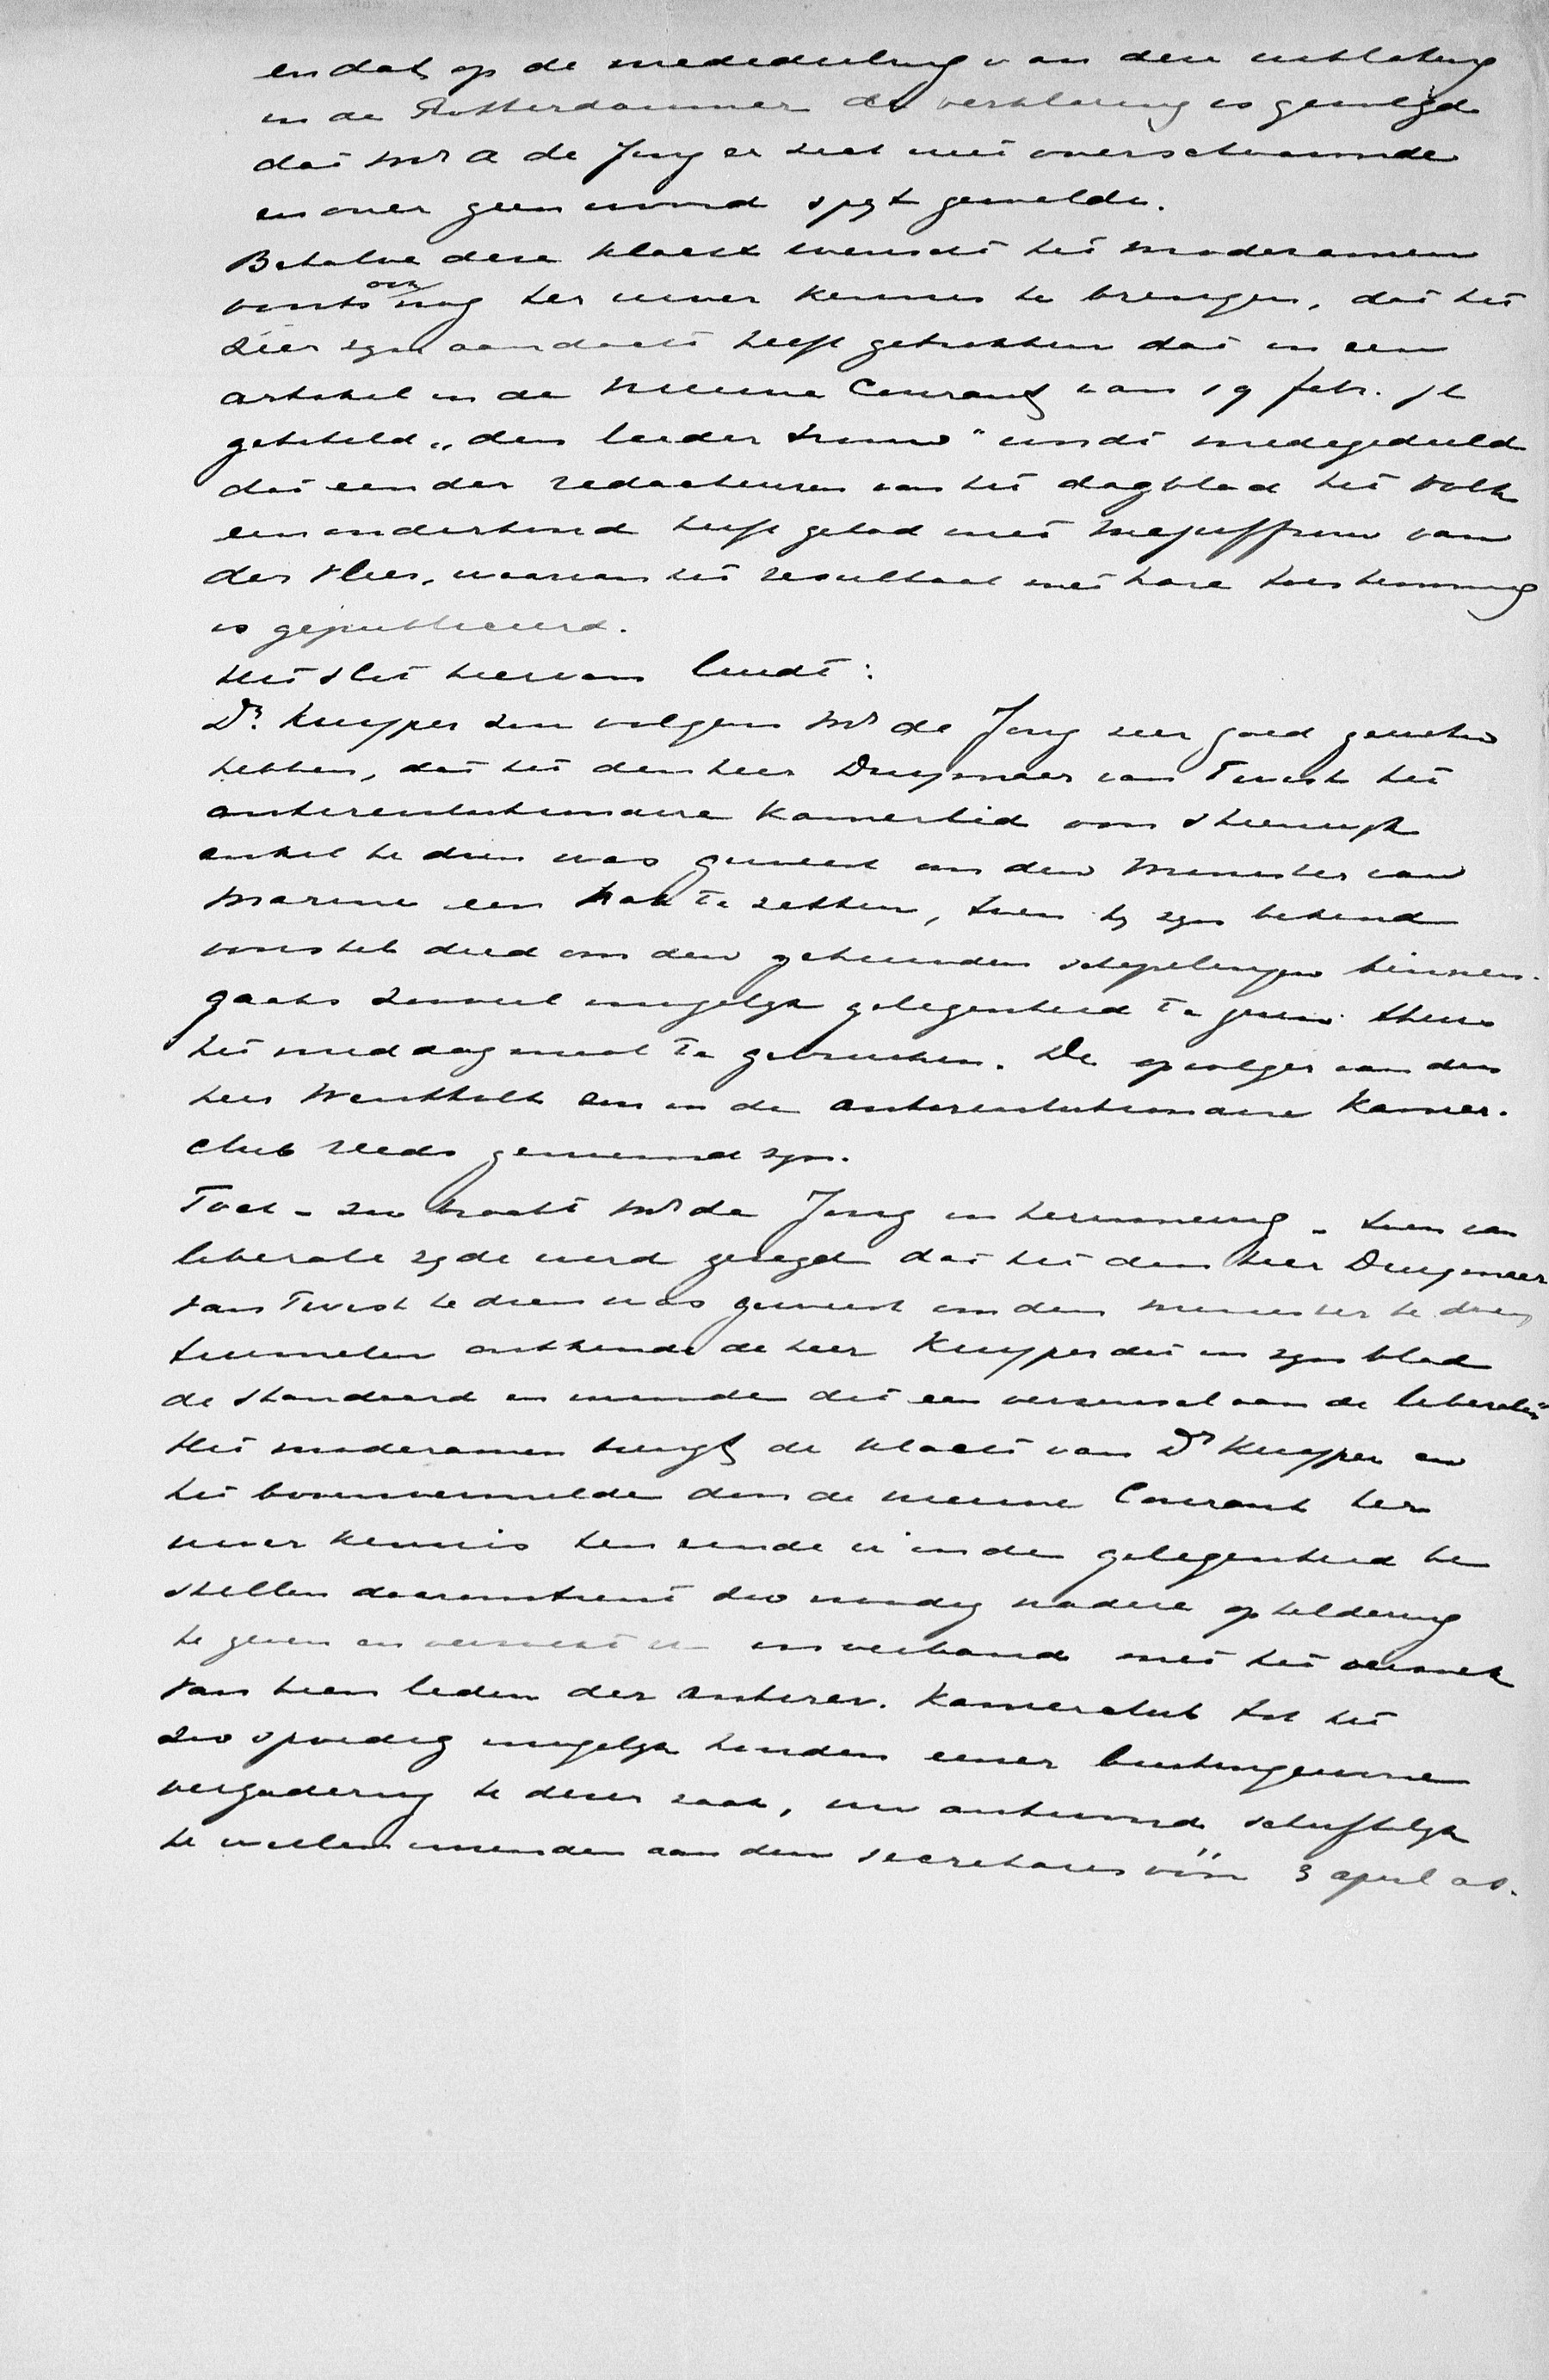 en dat op de mededeeling van deze uitlating
in de Rotterdammer de verklaring is gevolgd
dat Mr A de Jong er zich niet over schaamde
en over geen woord spijt gevoelde.
Behalve deze klacht wenscht het moderamen
ook nog ter uwer kennis te brengen, dat het
zeer zijn aandacht heeft getrokken dat in een
artikel in de Nieuwe Courant van 19 febr. jl
getiteld „den leider trouw" wordt medegedeeld
dat een der redacteuren van het dagblad het Volk
een onderhoud heeft gehad met Mejuffrouw van
der Vlies, waarvan het resultaat met hare toestemming
is gepubliceerd.
Het slot hiervan luidt:
Dr. Kuyper zou volgens Mr de Jong zeer goed geweten
hebben, dat het den heer Duymaer van Twist het
antirevolutionaire Kamerlid van Steenwijk
enkel te doen was geweest om den Minister van
Marine een hak te zetten, toen hij zijn bekend
voorstel deed om den gehuwden schepelingen binnen-
gaats zooveel mogelijk gelegenheid te geven thuis
het middagmaal te gebruiken. De opvolger van den
heer Wentholt zou in de antirevolutionaire Kamer-
club reeds genoemd zijn.
Toch – zoo bracht Mr de Jong in herinnering – toen van
liberale zijde werd gezegd dat het den heer Duymaer
van Twist te doen was geweest om den minister te doen
tuimelen ontkende de heer Kuyper dit in zijn blad
de Standaard en noemde dit een verzinsel van de liberalen"
Het moderamen brengt de klacht van Dr Kuyper en
het bovenvermelde door de nieuwe Courant ter
uwer kennis ten einde u in de gelegenheid te
stellen daaromtrent zoo noodig nadere opheldering
te geven en verzoekt u in verband met het verzoek
van tien leden der antirev. Kamerclub tot het
zoo spoedig mogelijk houden eener buitengewone
vergadering te dezer zake, uw antwoord schriftelijk
te willen inzenden aan den secretaris vóór 3 april as.